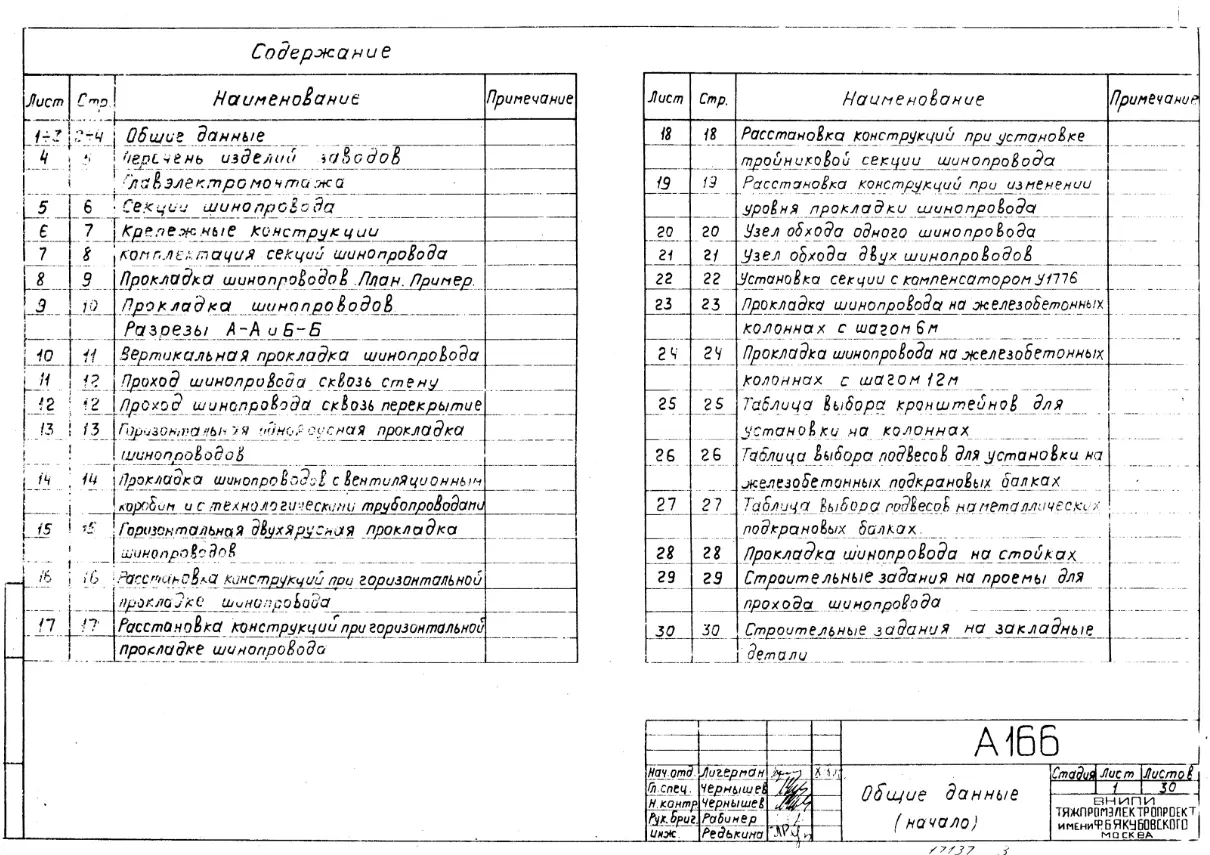 Содержание
Лист Стр. Наименование Примечание
1÷3 2÷4 Общие данные
4 5 Перечень изделий заводов
Главэлектромонтажа
5 6 Секции шинопровода
6 7 Крепежные конструкции
7 8 Комплектация секций шинопровода
8 9 Прокладка шинопроводов. План. Пример.
9 10 Прокладка шинопроводов
Разрезы А-А и Б-Б
10 11 Вертикальная прокладка шинопровода
11 12 Проход шинопровода сквозь стену
12 12 Проход шинопровода сквозь перекрытие
13 13 Горизонтальная одноярусная прокладка
шинопроводов
14 14 Прокладка шинопроводов с вентиляционным
коробом и с технологическими трубопроводами
15 15 Горизонтальная двухярусная прокладка
шинопроводов
16 16 Расстановка конструкций при горизонтальной
прокладке шинопровода
17 17 Расстановка конструкций при горизонтальной
прокладке шинопровода
Лист Стр. Наименование Примечание
18 18 Расстановка конструкций при установке
тройниковой секции шинопровода
19 19 Расстановка конструкций при изменении
уровня прокладки шинопровода
20 20 Узел обхода одного шинопровода
21 21 Узел обхода двух шинопроводов
22 22 Установка секции с компенсатором У1776
23 23 Прокладка шинопровода на железобетонных
колоннах с шагом 6м
24 24 Прокладка шинопровода на железобетонных
колоннах с шагом 12м
25 25 Таблица выбора кронштейнов для
установки на колоннах
26 26 Таблица выбора подвесов для установки на
железобетонных подкрановых балках
27 27 Таблица выбора подвесов на металлических
подкрановых балках.
28 28 Прокладка шинопровода на стойках
29 29 Строительные задания на проемы для
прохода шинопровода
30 30 Строительные задания на закладные
детали
А166
Нач.отд. Лигерман
Гл.спец. Чернышев
Н.контр Чернышев
Рук.бриг. Рабинер
инж. Редькина
Общие данные
(начало)
Стадия Лист Листов
1 30
ВНИПИ
ТЯЖПРОМЭЛЕКТРОПРОЕКТ
ИМЕНИ Ф.Б.ЯКУБОВСКОГО
МОСКВА
17137 3